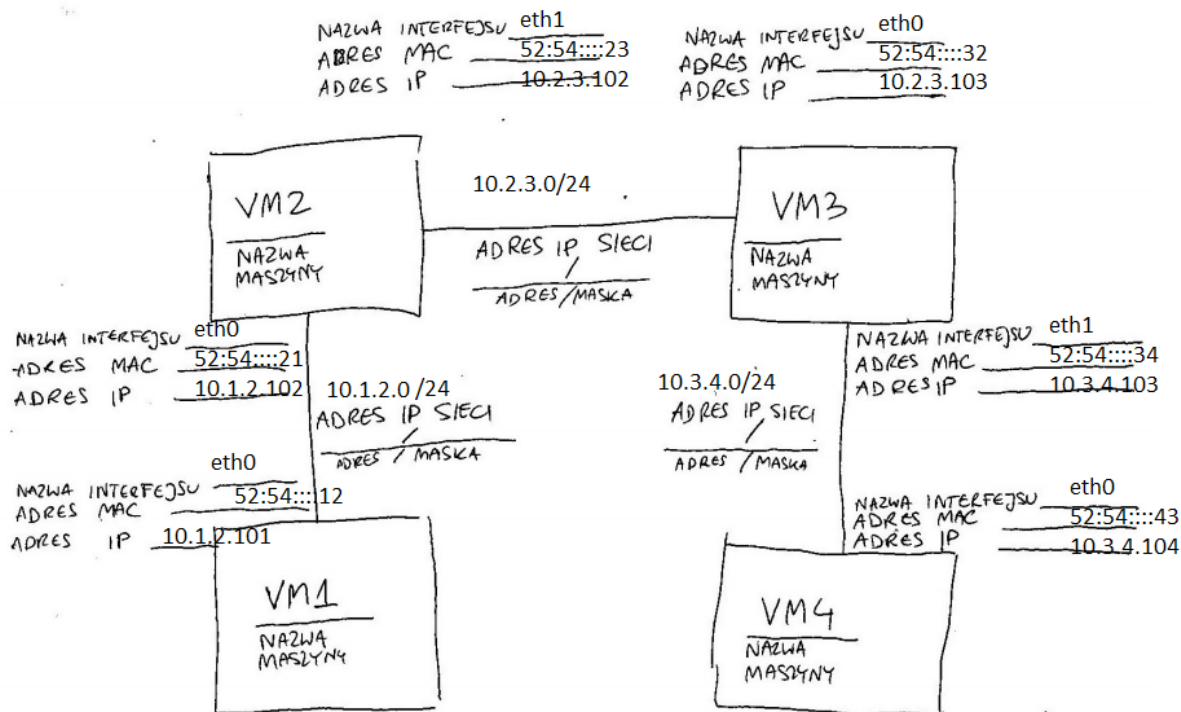 NAZWA INTERFEJSU eth1
ADRES MAC 52:54::::23
ADRES IP 10.2.3.102
NAZWA INTERFEJSU eth0
ADRES MAC 52:54::::32
ADRES IP 10.2.3.103
VM2
NAZWA
MASZYNY
10.2.3.0/24
ADRES IP SIECI
/
ADRES/MASKA
VM3
NAZWA
MASZYNY
NAZWA INTERFEJSU eth0
ADRES MAC 52:54::::21
ADRES IP 10.1.2.102
10.1.2.0 /24
ADRES IP SIECI
/
ADRES / MASKA
10.3.4.0/24
ADRES IP SIECI
/
ADRES / MASKA
NAZWA INTERFEJSU eth1
ADRES MAC 52:54::::34
ADRES IP 10.3.4.103
NAZWA INTERFEJSU eth0
ADRES MAC 52:54::::12
ADRES IP 10.1.2.101
NAZWA INTERFEJSU eth0
ADRES MAC 52:54::::43
ADRES IP 10.3.4.104
VM1
NAZWA
MASZYNY
VM4
NAZWA
MASZYNY